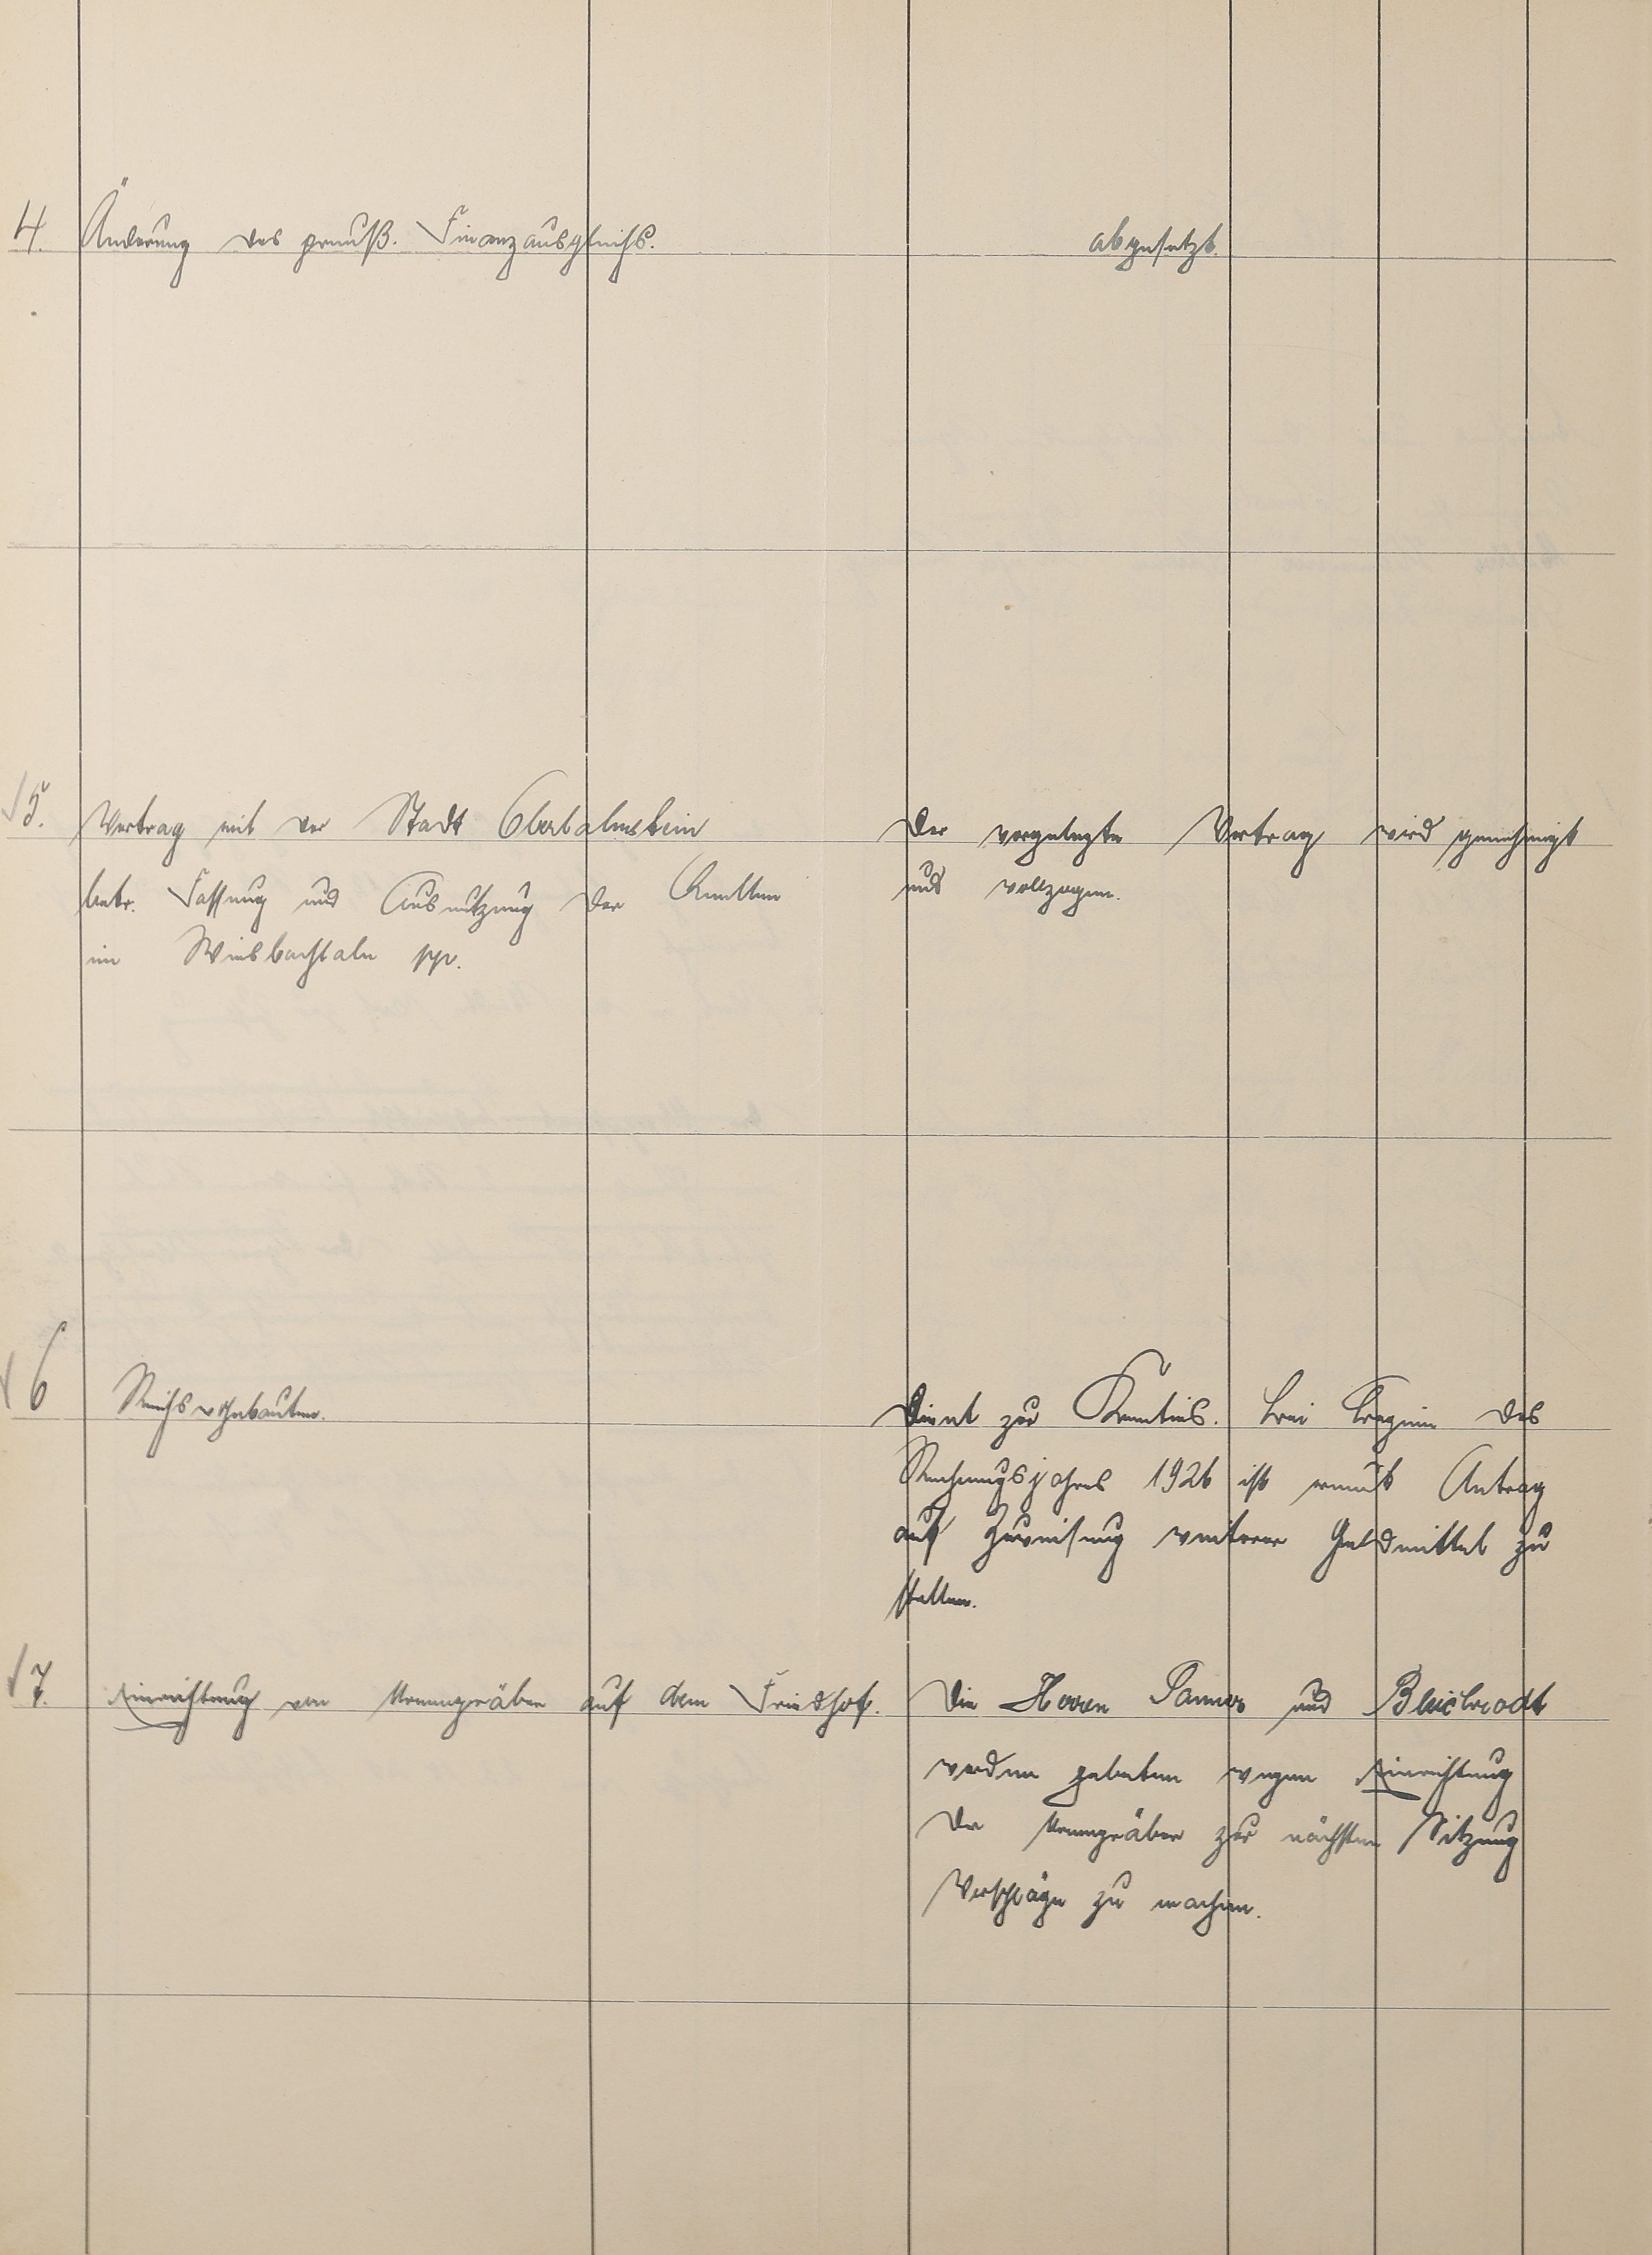 4. Änderung des preuß. Finanzausgleichs.
abgesetzt.
5. Vertrag mit der Stadt Oberlahnstein
betr. Fassung und Ausnutzung der Quellen
im Wiesbachtale pp.
Der vorgelegte Vertrag wird genehmigt
und vollzogen.
6 Reichswohnbauten.
Dient zur Kenntnis. Bei Beginn des
Rechnungsjahres 1926 ist erneut Antrag
auf Zuweisung weiterer Geldmittel zu
stellen.
7. Einrichtung von Urnengräber auf dem Friedhof.
Die Herren und Bleichrodt
werden gebeten wegen Einrichtung
der Urnengräber zur nächsten Sitzung
Vorschläge zu machen.